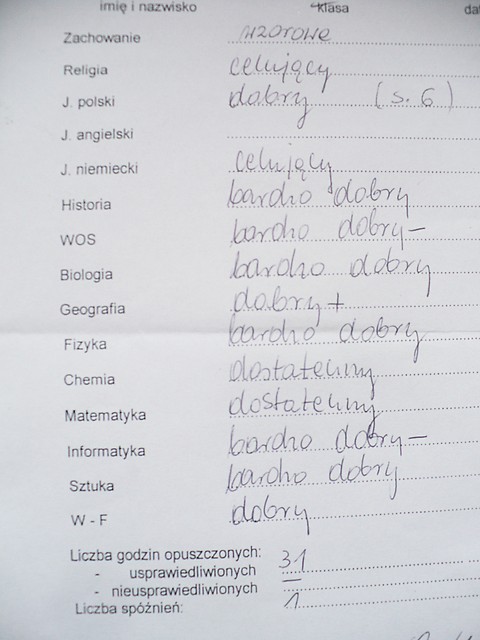 imię i nazwisko klasa
Zachowanie wzorowe
Religia celujący
J. polski dobry (s. 6)
J. angielski
J. niemiecki celujący
Historia bardzo dobry
WOS bardzo dobry-
Biologia bardzo dobry
Geografia dobry+
Fizyka bardzo dobry
Chemia dostateczny
Matematyka dostateczny
Informatyka bardzo dobry-
Sztuka bardzo dobry
W - F dobry
Liczba godzin opuszczonych:
- usprawiedliwionych 31
- nieusprawiedliwionych —
Liczba spóźnień: 1